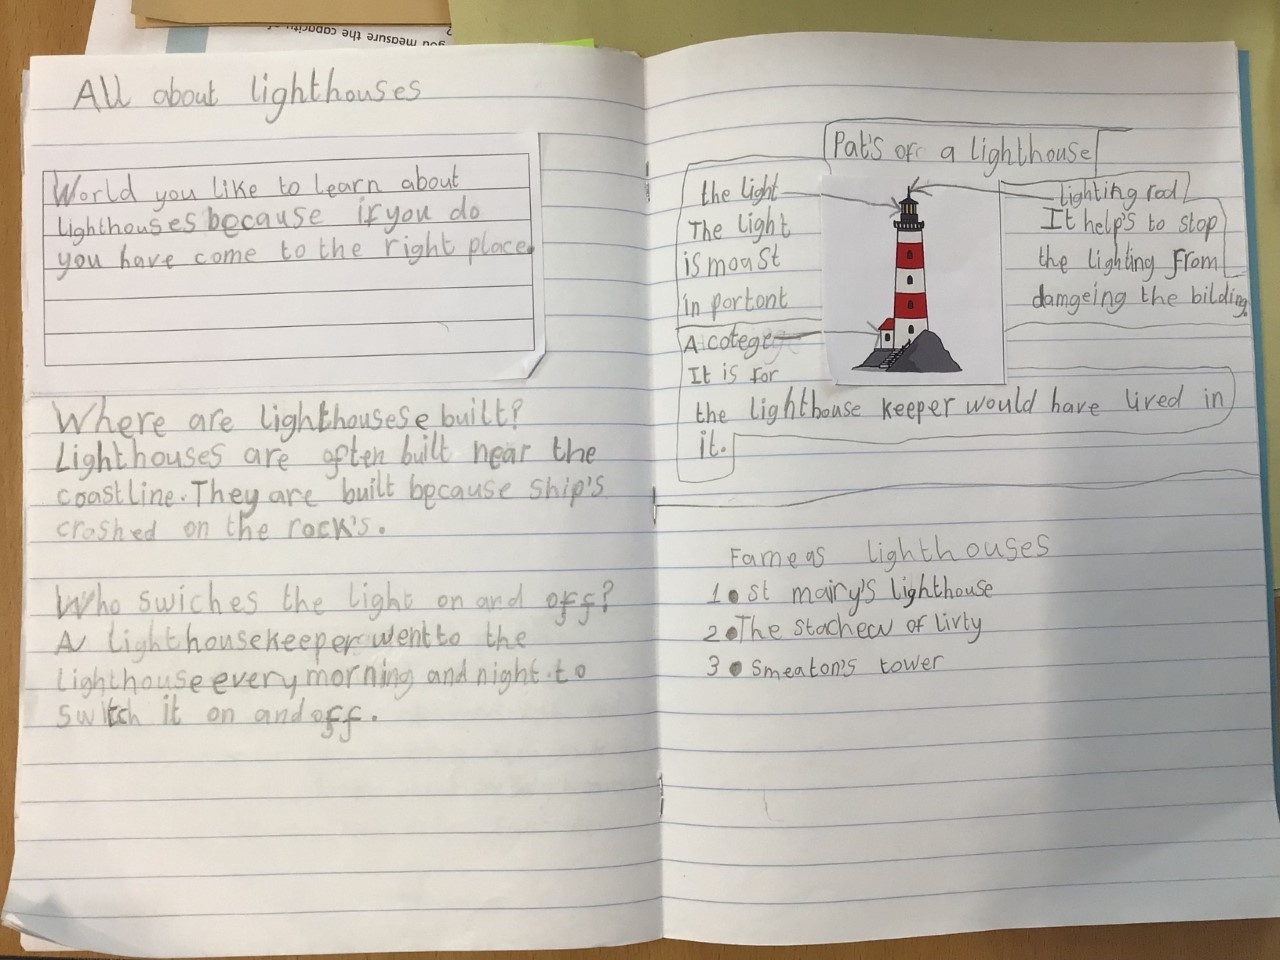 you measure the capacity of
?
All about lighthouses
World you like to learn about
lighthouses because if you do
you have come to the right place.
Where are lighthousese built?
Lighthouses are often built near the
coastline. They are built because ship's
crashed on the rock's.
Who swiches the light on and off?
A lighthousekeeper went to the
lighthouse every morning and night to
switch it on and off.
Pat's of a lighthouse
the light
The light
is moast
in portont
A cotege
It is for
the lighthouse keeper would have lived in
it.
lighting rod
It help's to stop
the lighting from
damgeing the bilding.
Fameas lighthouses
1. St mairy's lighthouse
2. The stachew of livty
3. Smeaton's tower